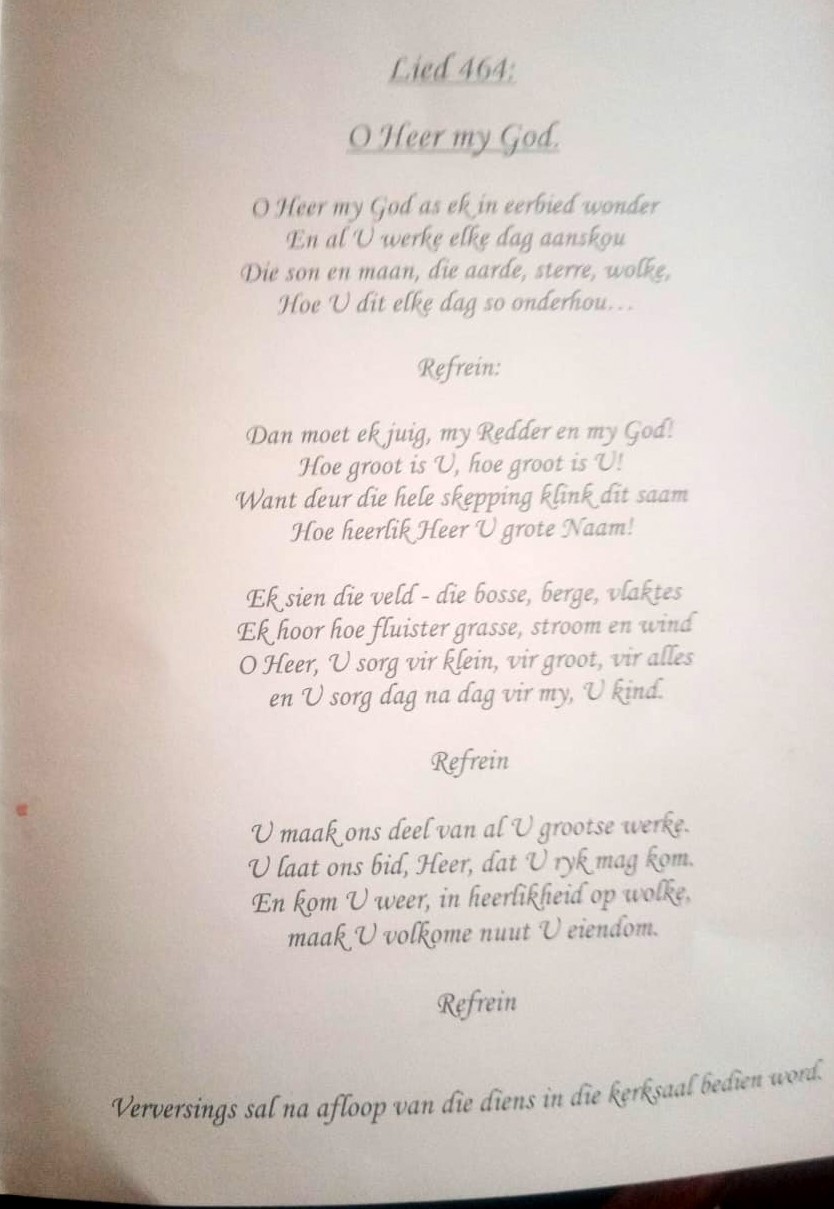 Lied 464:
O Heer my God.
O Heer my God as ek in eerbied wonder
En al U werke elke dag aanskou
Die son en maan, die aarde, sterre, wolke,
Hoe U dit elke dag so onderhou...
Refrein:
Dan moet ek juig, my Redder en my God!
Hoe groot is U, hoe groot is U!
Want deur die hele skepping klink dit saam
Hoe heerlik Heer U grote Naam!
Ek sien die veld - die bosse, berge, vlaktes
Ek hoor hoe fluister grasse, stroom en wind
O Heer, U sorg vir klein, vir groot, vir alles
en U sorg dag na dag vir my, U kind.
Refrein
U maak ons deel van al U grootse werke.
U laat ons bid, Heer, dat U ryk mag kom.
En kom U weer, in heerlikheid op wolke,
maak U volkome nuut U eiendom.
Refrein
Verversings sal na afloop van die diens in die kerksaal bedien word.